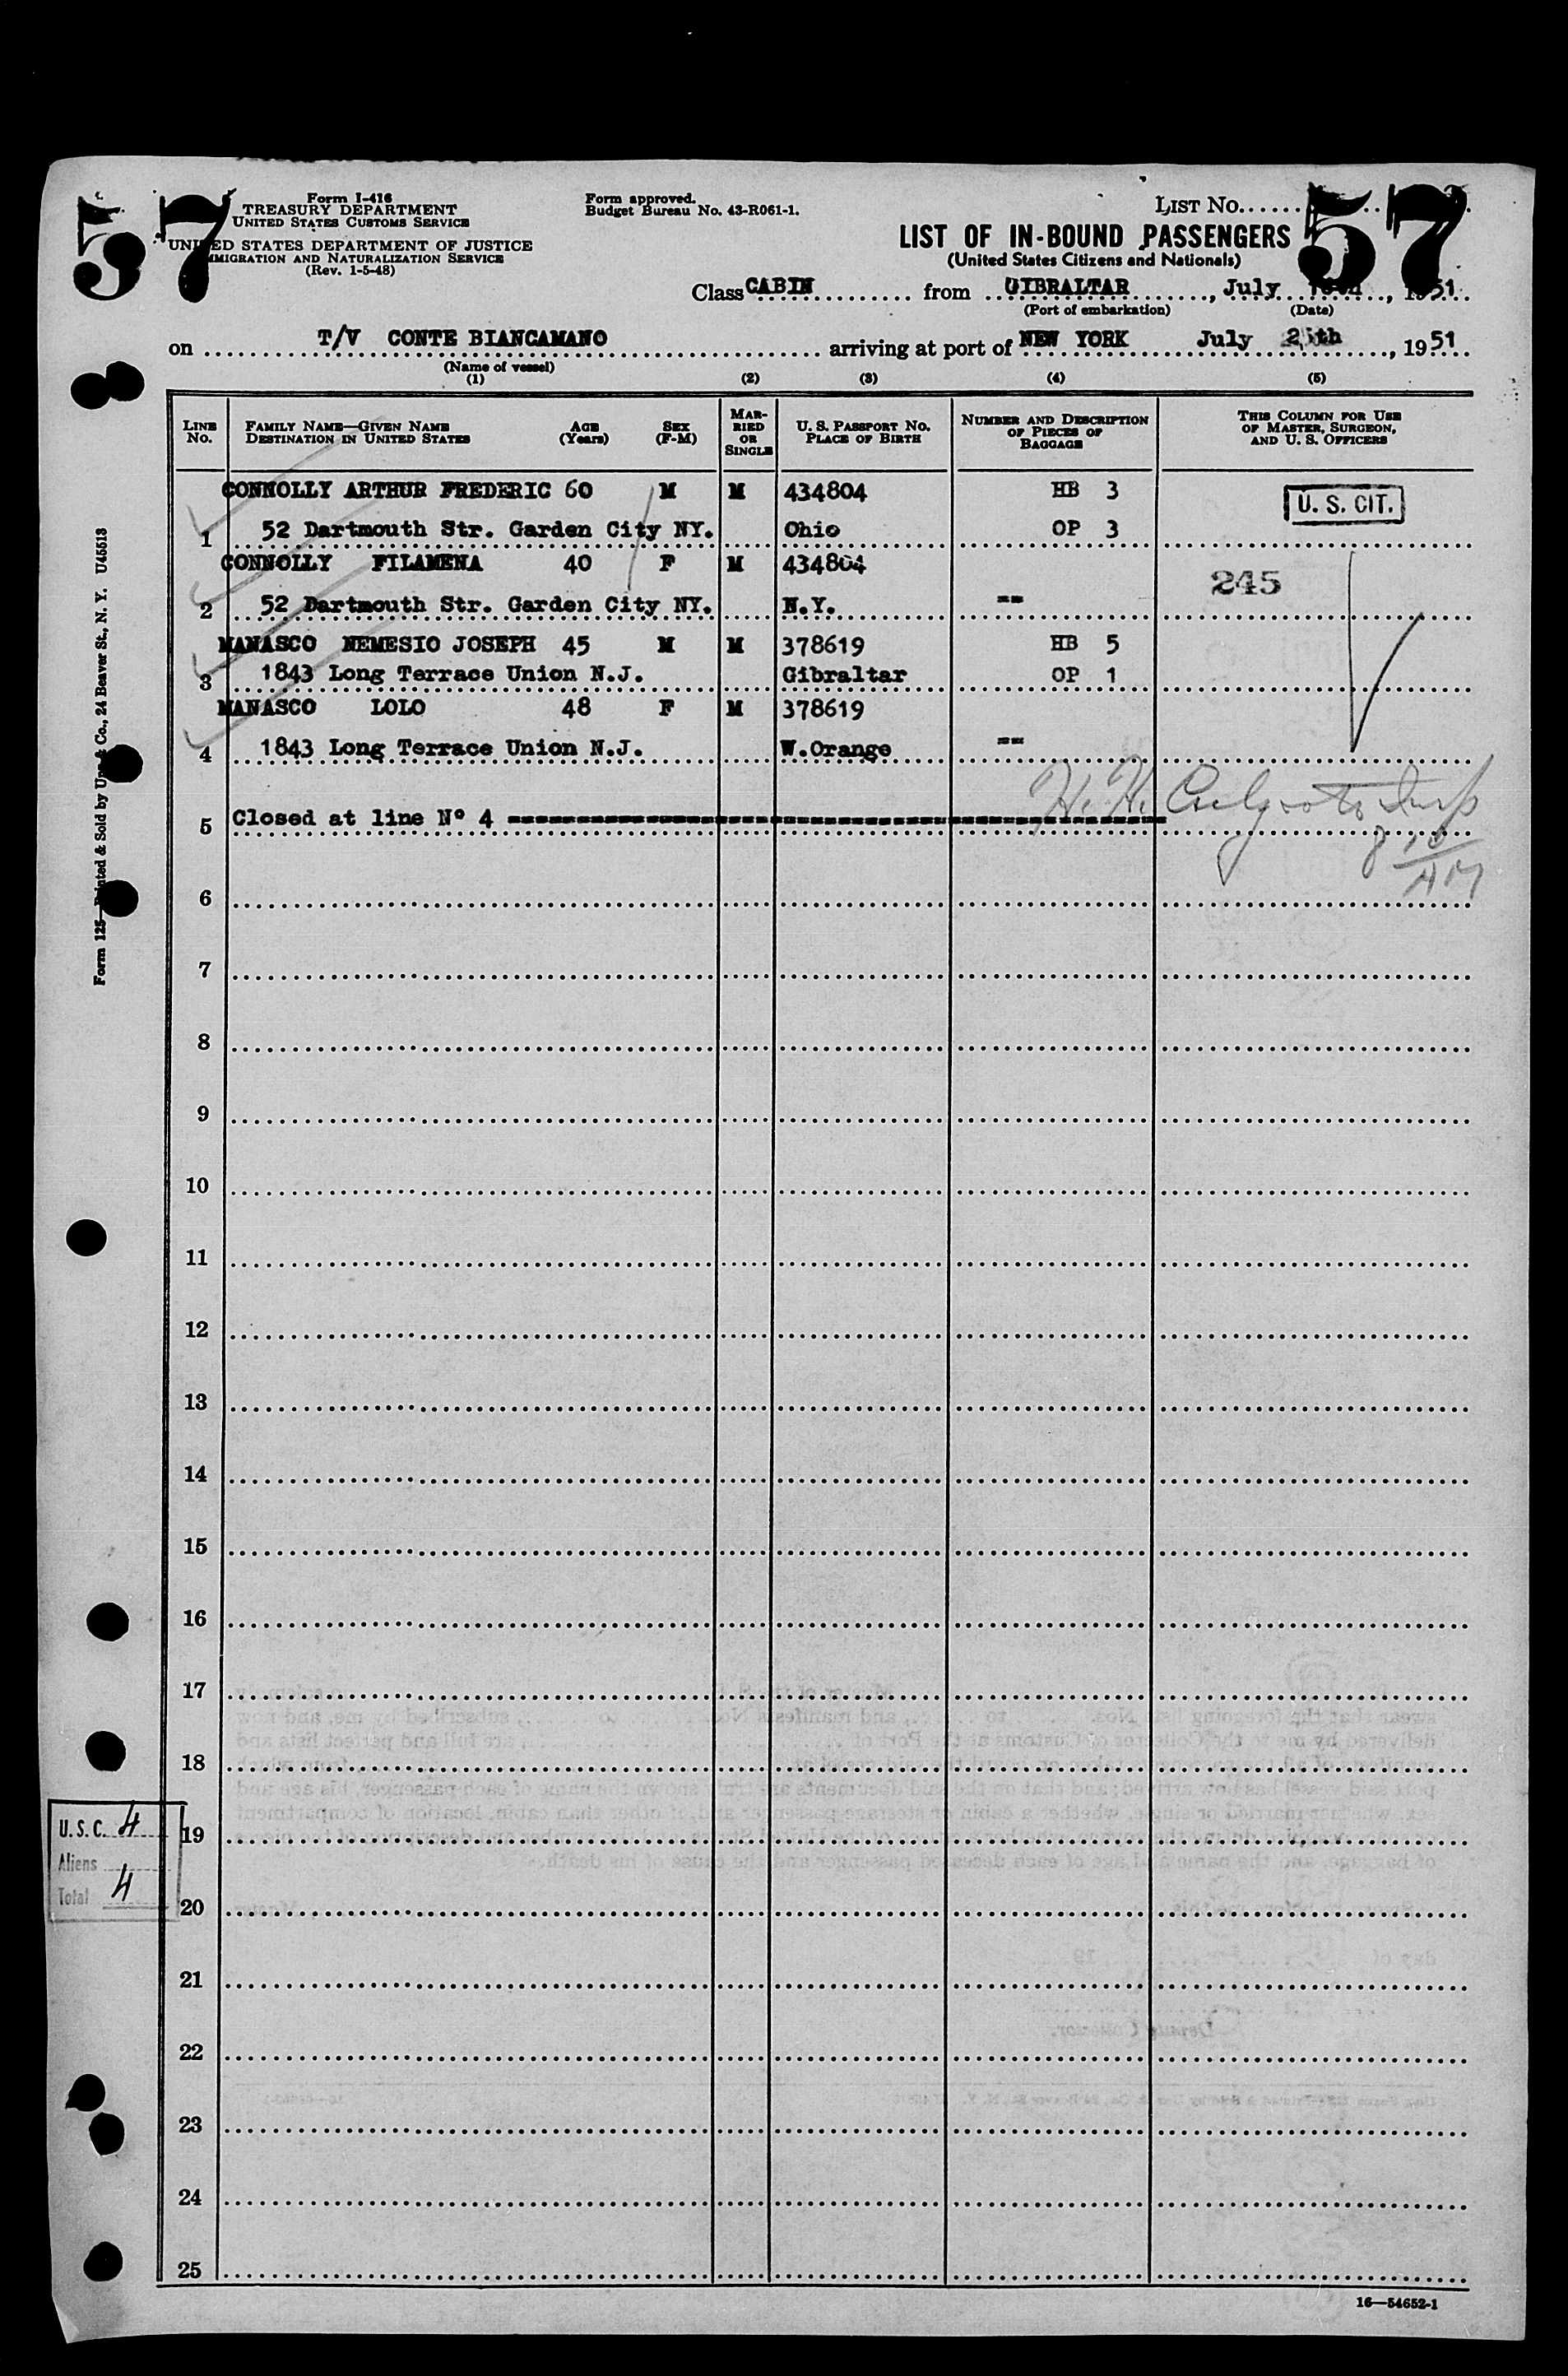 57
57
Form I-416
TREASURY DEPARTMENT
UNITED STATES CUSTOMS SERVICE
UNITED STATES DEPARTMENT OF JUSTICE
IMMIGRATION AND NATURALIZATION SERVICE
(Rev. 1-5-48)
Form approved.
Budget Bureau No. 43-R061-1.
LIST No.
LIST OF IN-BOUND PASSENGERS
(United States Citizens and Nationals)
Class CABIN from GIBRALTAR, July , 1951
(Port of embarkation) (Date)
on T/V CONTE BIANCAMANO arriving at port of NEW YORK July 25th, 1951
(Name of vessel)
(1) (2) (3) (4) (5)
LINE No.
FAMILY NAME—GIVEN NAME
DESTINATION IN UNITED STATES
AGE (Years)
SEX (F-M)
MARRIED OR SINGLE
U. S. PASSPORT NO.
PLACE OF BIRTH
NUMBER AND DESCRIPTION OF PIECES OF BAGGAGE
THIS COLUMN FOR USE OF MASTER, SURGEON, AND U. S. OFFICERS
CONNOLLY ARTHUR FREDERIC 60 M M 434804 HB 3 U. S. CIT.
1 52 Dartmouth Str. Garden City NY. Ohio OP 3
CONNOLLY FILAMENA 40 F M 434804 245
2 52 Dartmouth Str. Garden City NY. N.Y. --
MANASCO NEMESIO JOSEPH 45 M M 378619 HB 5
3 1843 Long Terrace Union N.J. Gibraltar OP 1
MANASCO LOLO 48 F M 378619
4 1843 Long Terrace Union N.J. W.Orange --
H. H.
5 Closed at line Nº 4
8 10 AM
6
7
8
9
10
11
12
13
14
15
16
17
18
19
20
21
22
23
24
25
U.S.C. 4
Aliens
Total 4
16—54652-1